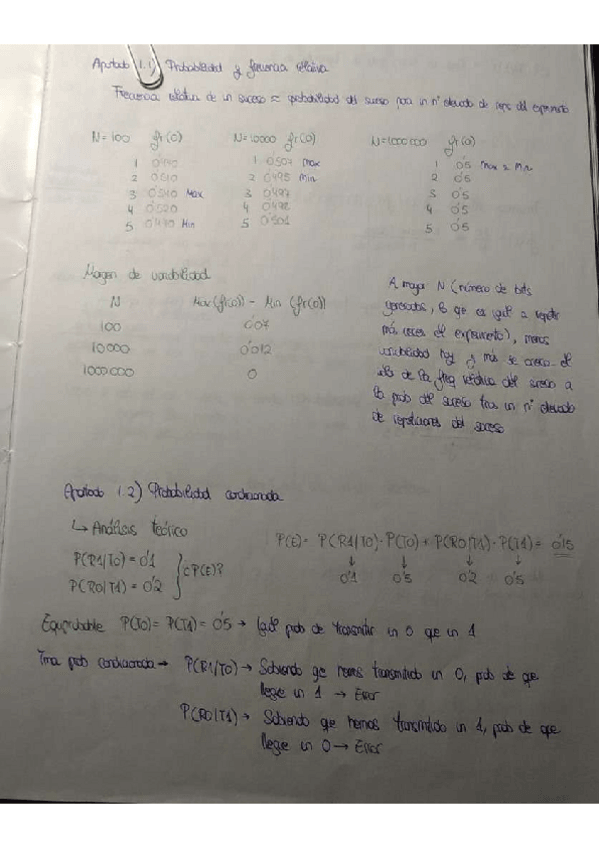 Apartado 1.1) Probabilidad y frecuencia relativa
Frecuencia relativa de un suceso ≈ probabilidad del suceso para un nº elevado de reps del experimento
N=100 fr(0) N=10000 fr(0) N=1000000 fr(0)
1 1 0'507 Max 1 0'5 Max = Min
2 0'510 2 0'495 Min 2 0'5
3 0'540 Max 3 0'497 3 0'5
4 0'520 4 0'498 4 0'5
5 0'470 Min 5 0'501 5 0'5
Margen de variabilidad
N Max(fr(0)) - Min (fr(0))
100 0'07
10000 0'012
1000000 0
A mayor N (número de bits
generados, lo que es igual a repetir
más veces el experimento), menos
variabilidad hay y más se acerca el
valor de la freq relativa del suceso a
la prob del suceso tras un nº elevado
de repeticiones del suceso
Apartado 1.2) Probabilidad condicionada
↳ Análisis teórico
P(R1/T0) = 0'1
P(R0/T1) = 0'2 } ¿P(E)?
P(E) = P(R1/T0)·P(T0) + P(R0/T1)·P(T1) = 0'15
↓ ↓ ↓ ↓
0'1 0'5 0'2 0'5
Equiprobable P(T0) = P(T1) = 0'5 → Igual prob de transmitir un 0 que un 1
Tma prob condicionada → P(R1/T0) → Sabiendo que hemos transmitido un 0, prob de que
llegue un 1 → Error
P(R0/T1) → Sabiendo que hemos transmitido un 1, prob de que
llegue un 0 → Error